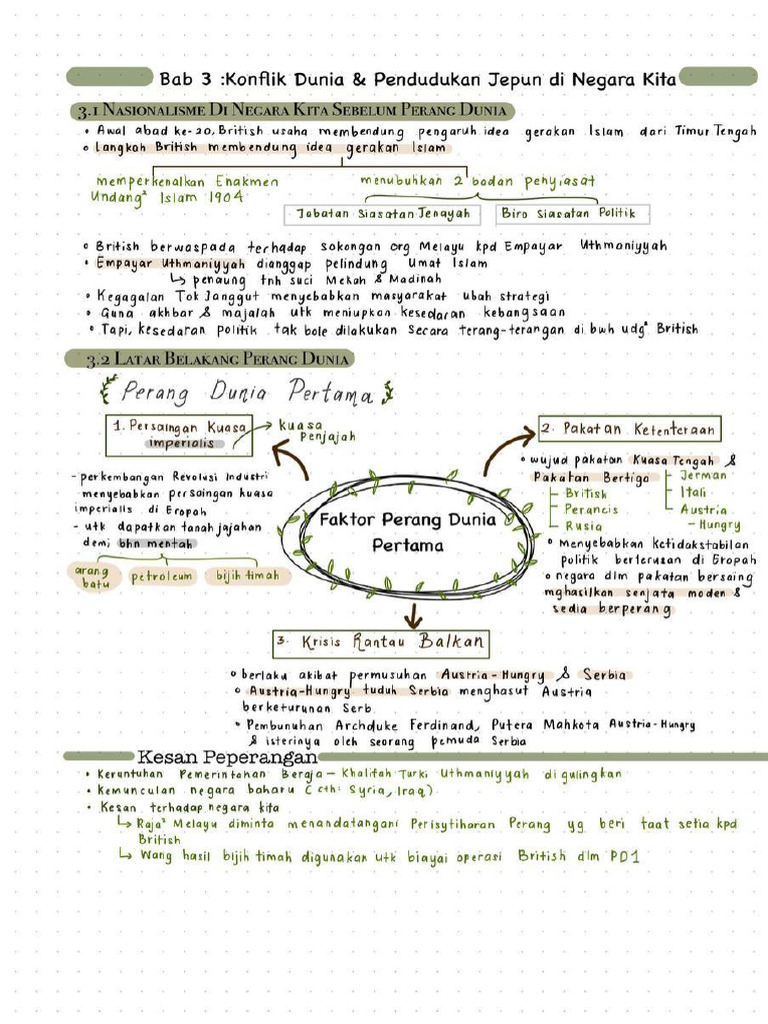 Bab 3 :Konflik Dunia & Pendudukan Jepun di Negara Kita
3.1 Nasionalisme Di Negara Kita Sebelum Perang Dunia
• Awal abad ke-20, British usaha membendung pengaruh idea gerakan Islam dari Timur Tengah
• Langkah British membendung idea gerakan Islam
memperkenalkan Enakmen
Undang² Islam 1904
menubuhkan 2 badan penyiasat
Jabatan Siasatan Jenayah
Biro Siasatan Politik
• British berwaspada terhadap sokongan org Melayu kpd Empayar Uthmaniyyah
• Empayar Uthmaniyyah dianggap pelindung Umat Islam
↳ penaung tnh suci Mekah & Madinah
• Kegagalan Tok Janggut menyebabkan masyarakat ubah strategi
• Guna akhbar & majalah utk meniupkan kesedaran kebangsaan
• Tapi, kesedaran politik tak bole dilakukan secara terang-terangan di bwh udg² British
3.2 Latar Belakang Perang Dunia
Perang Dunia Pertama
1. Persaingan Kuasa
imperialis
→ kuasa
penjajah
- perkembangan Revolusi Industri
menyebabkan persaingan kuasa
imperialis di Eropah
- utk dapatkan tanah jajahan
demi bhn mentah
arang
batu
petroleum
bijih timah
Faktor Perang Dunia
Pertama
2. Pakatan Ketenteraan
• wujud pakatan Kuasa Tengah &
Pakatan Bertiga
British
Perancis
Rusia
Jerman
Itali
Austria
-Hungry
• menyebabkan ketidakstabilan
politik berterusan di Eropah
• negara dlm pakatan bersaing
mghasilkan senjata moden &
sedia berperang
3. Krisis Rantau Balkan
• berlaku akibat permusuhan Austria-Hungry & Serbia
• Austria-Hungry tuduh Serbia menghasut Austria
berketurunan Serb.
• Pembunuhan Archduke Ferdinand, Putera Mahkota Austria-Hungry
& isterinya oleh seorang pemuda Serbia
Kesan Peperangan
• Keruntuhan Pemerintahan Beraja — Khalifah Turki Uthmaniyyah digulingkan
• Kemunculan negara baharu (cth: Syria, Iraq)
• Kesan terhadap negara kita
↳ Raja² Melayu diminta menandatangani Perisytiharan Perang yg beri taat setia kpd
British
↳ Wang hasil bijih timah digunakan utk biayai operasi British dlm PD1